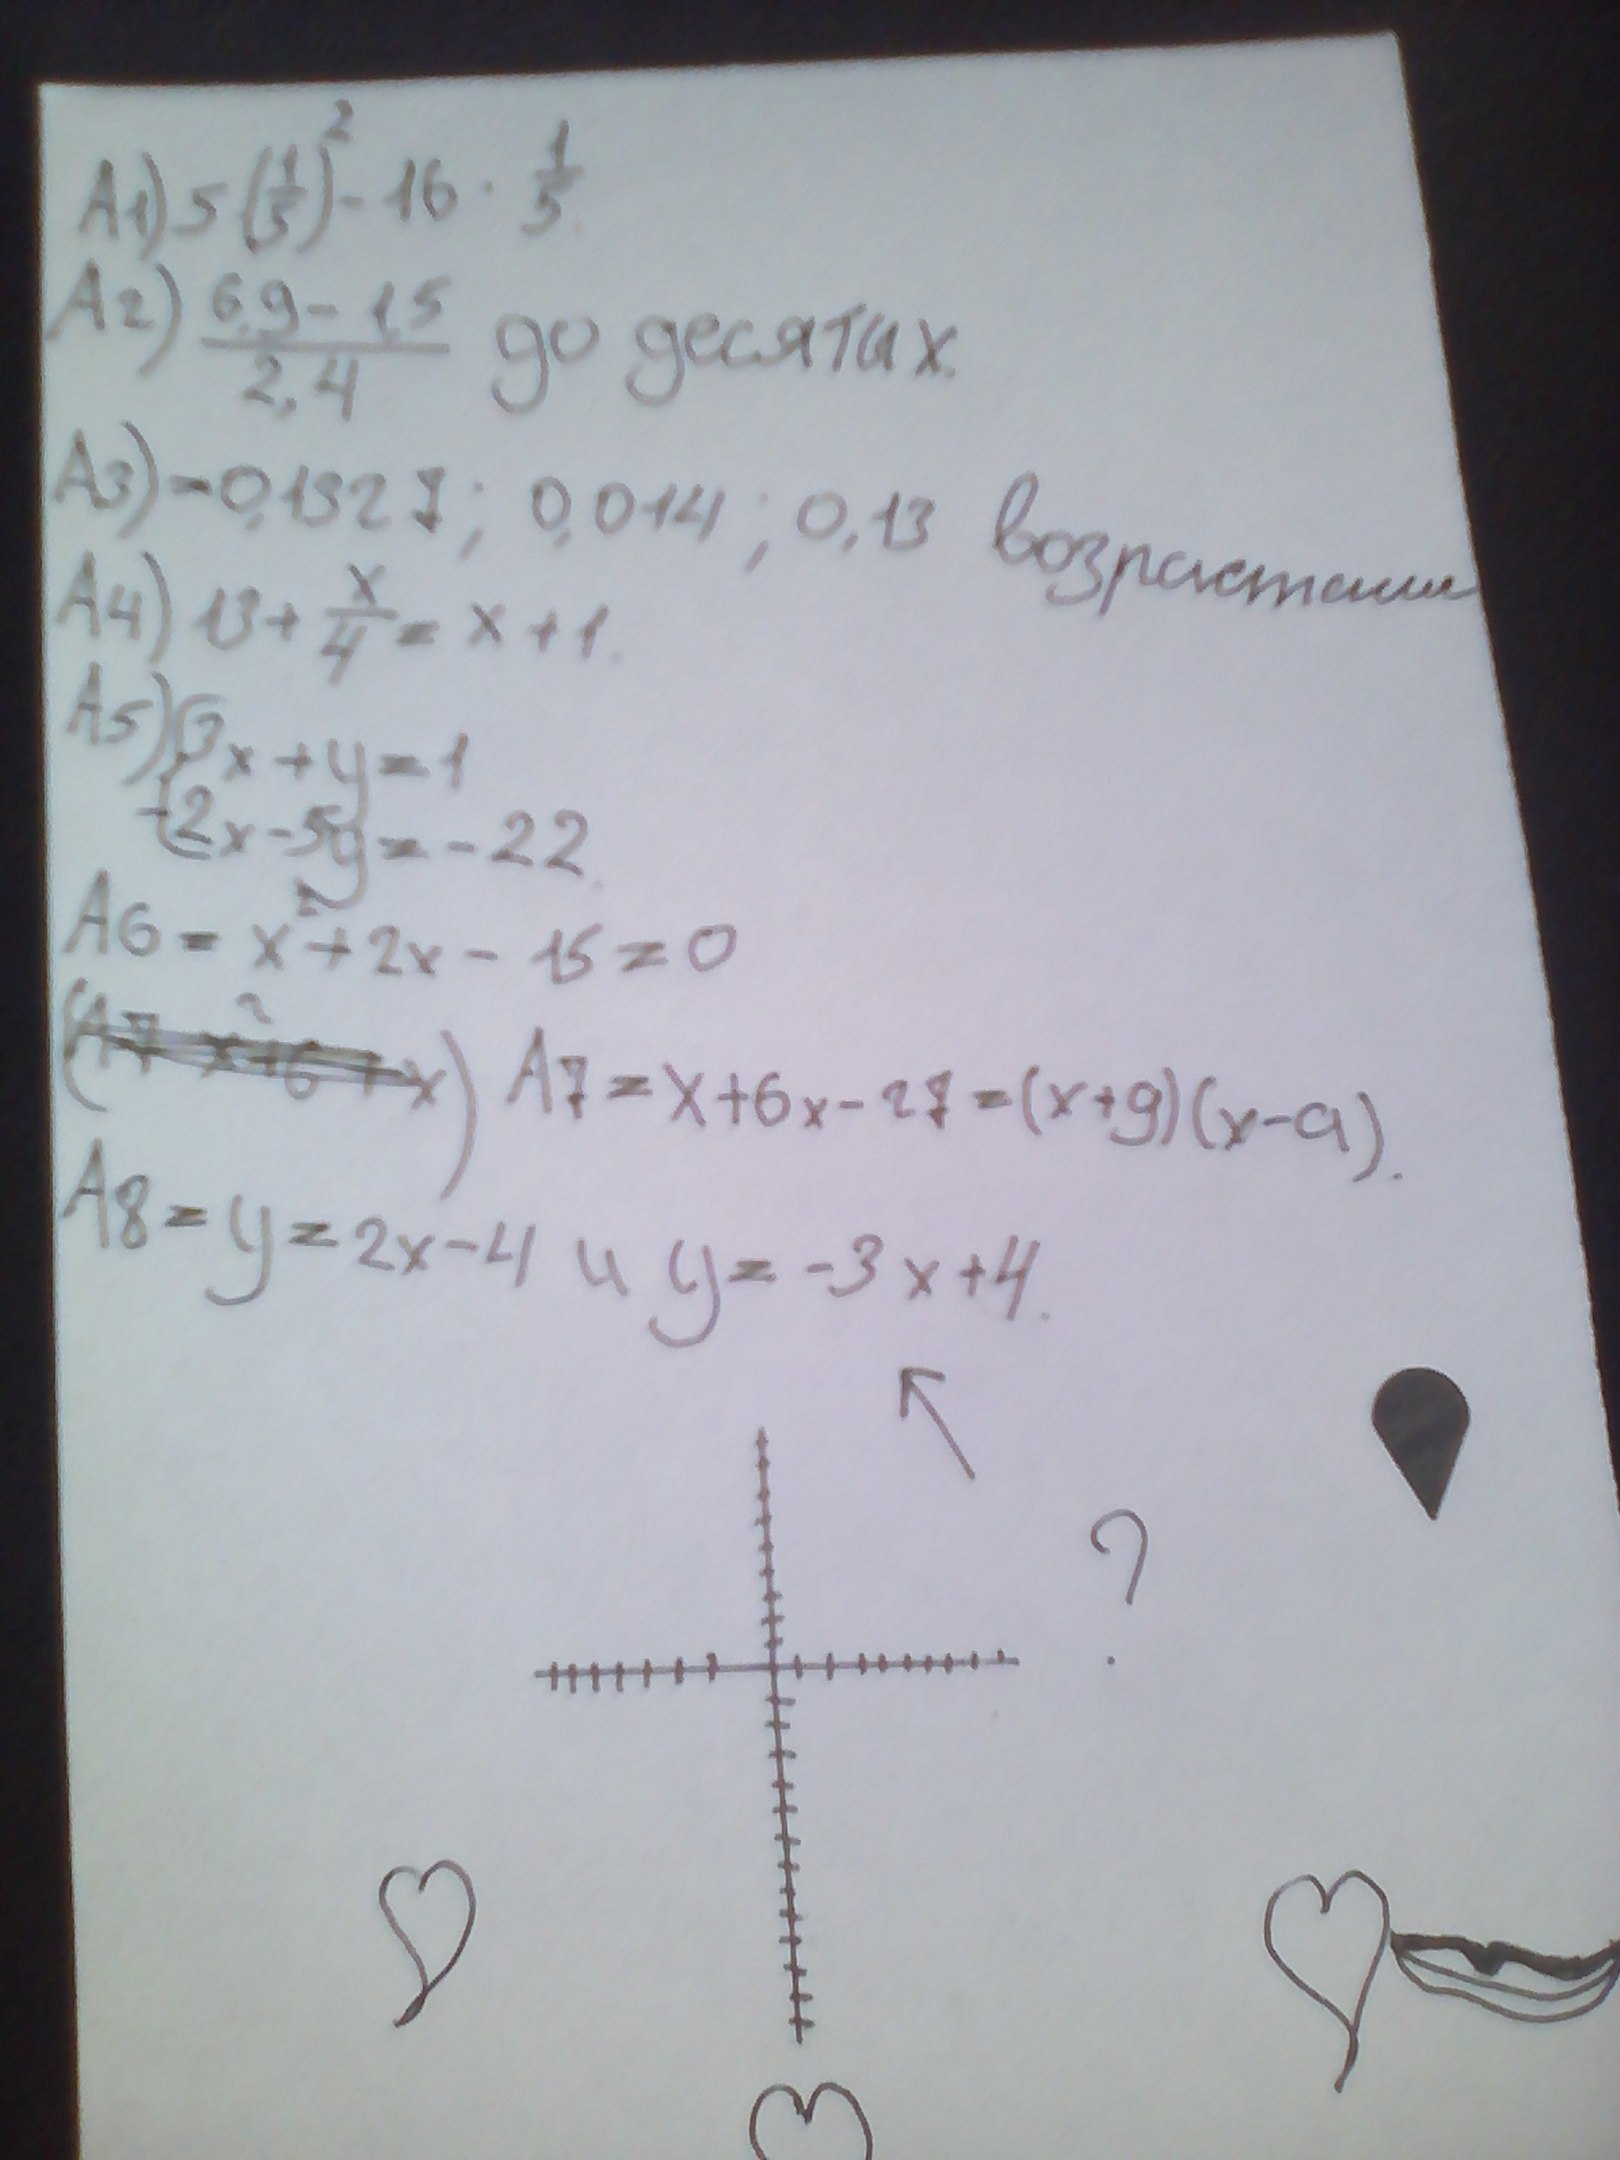 A1) 5(1/5)² - 16 · 1/5.
A2) 6,9 - 1,5 / 2,4 до десятых.
A3) -0,1327; 0,014; 0,13 возрастании
A4) 13 + x/4 = x + 1.
A5) {3x + y = 1
-2x - 5y = -22.
A6 = x² + 2x - 15 = 0
A7 = x + 6x - 27 = (x+9)(x-a).
A8 = y = 2x - 4 и y = -3x + 4.
?